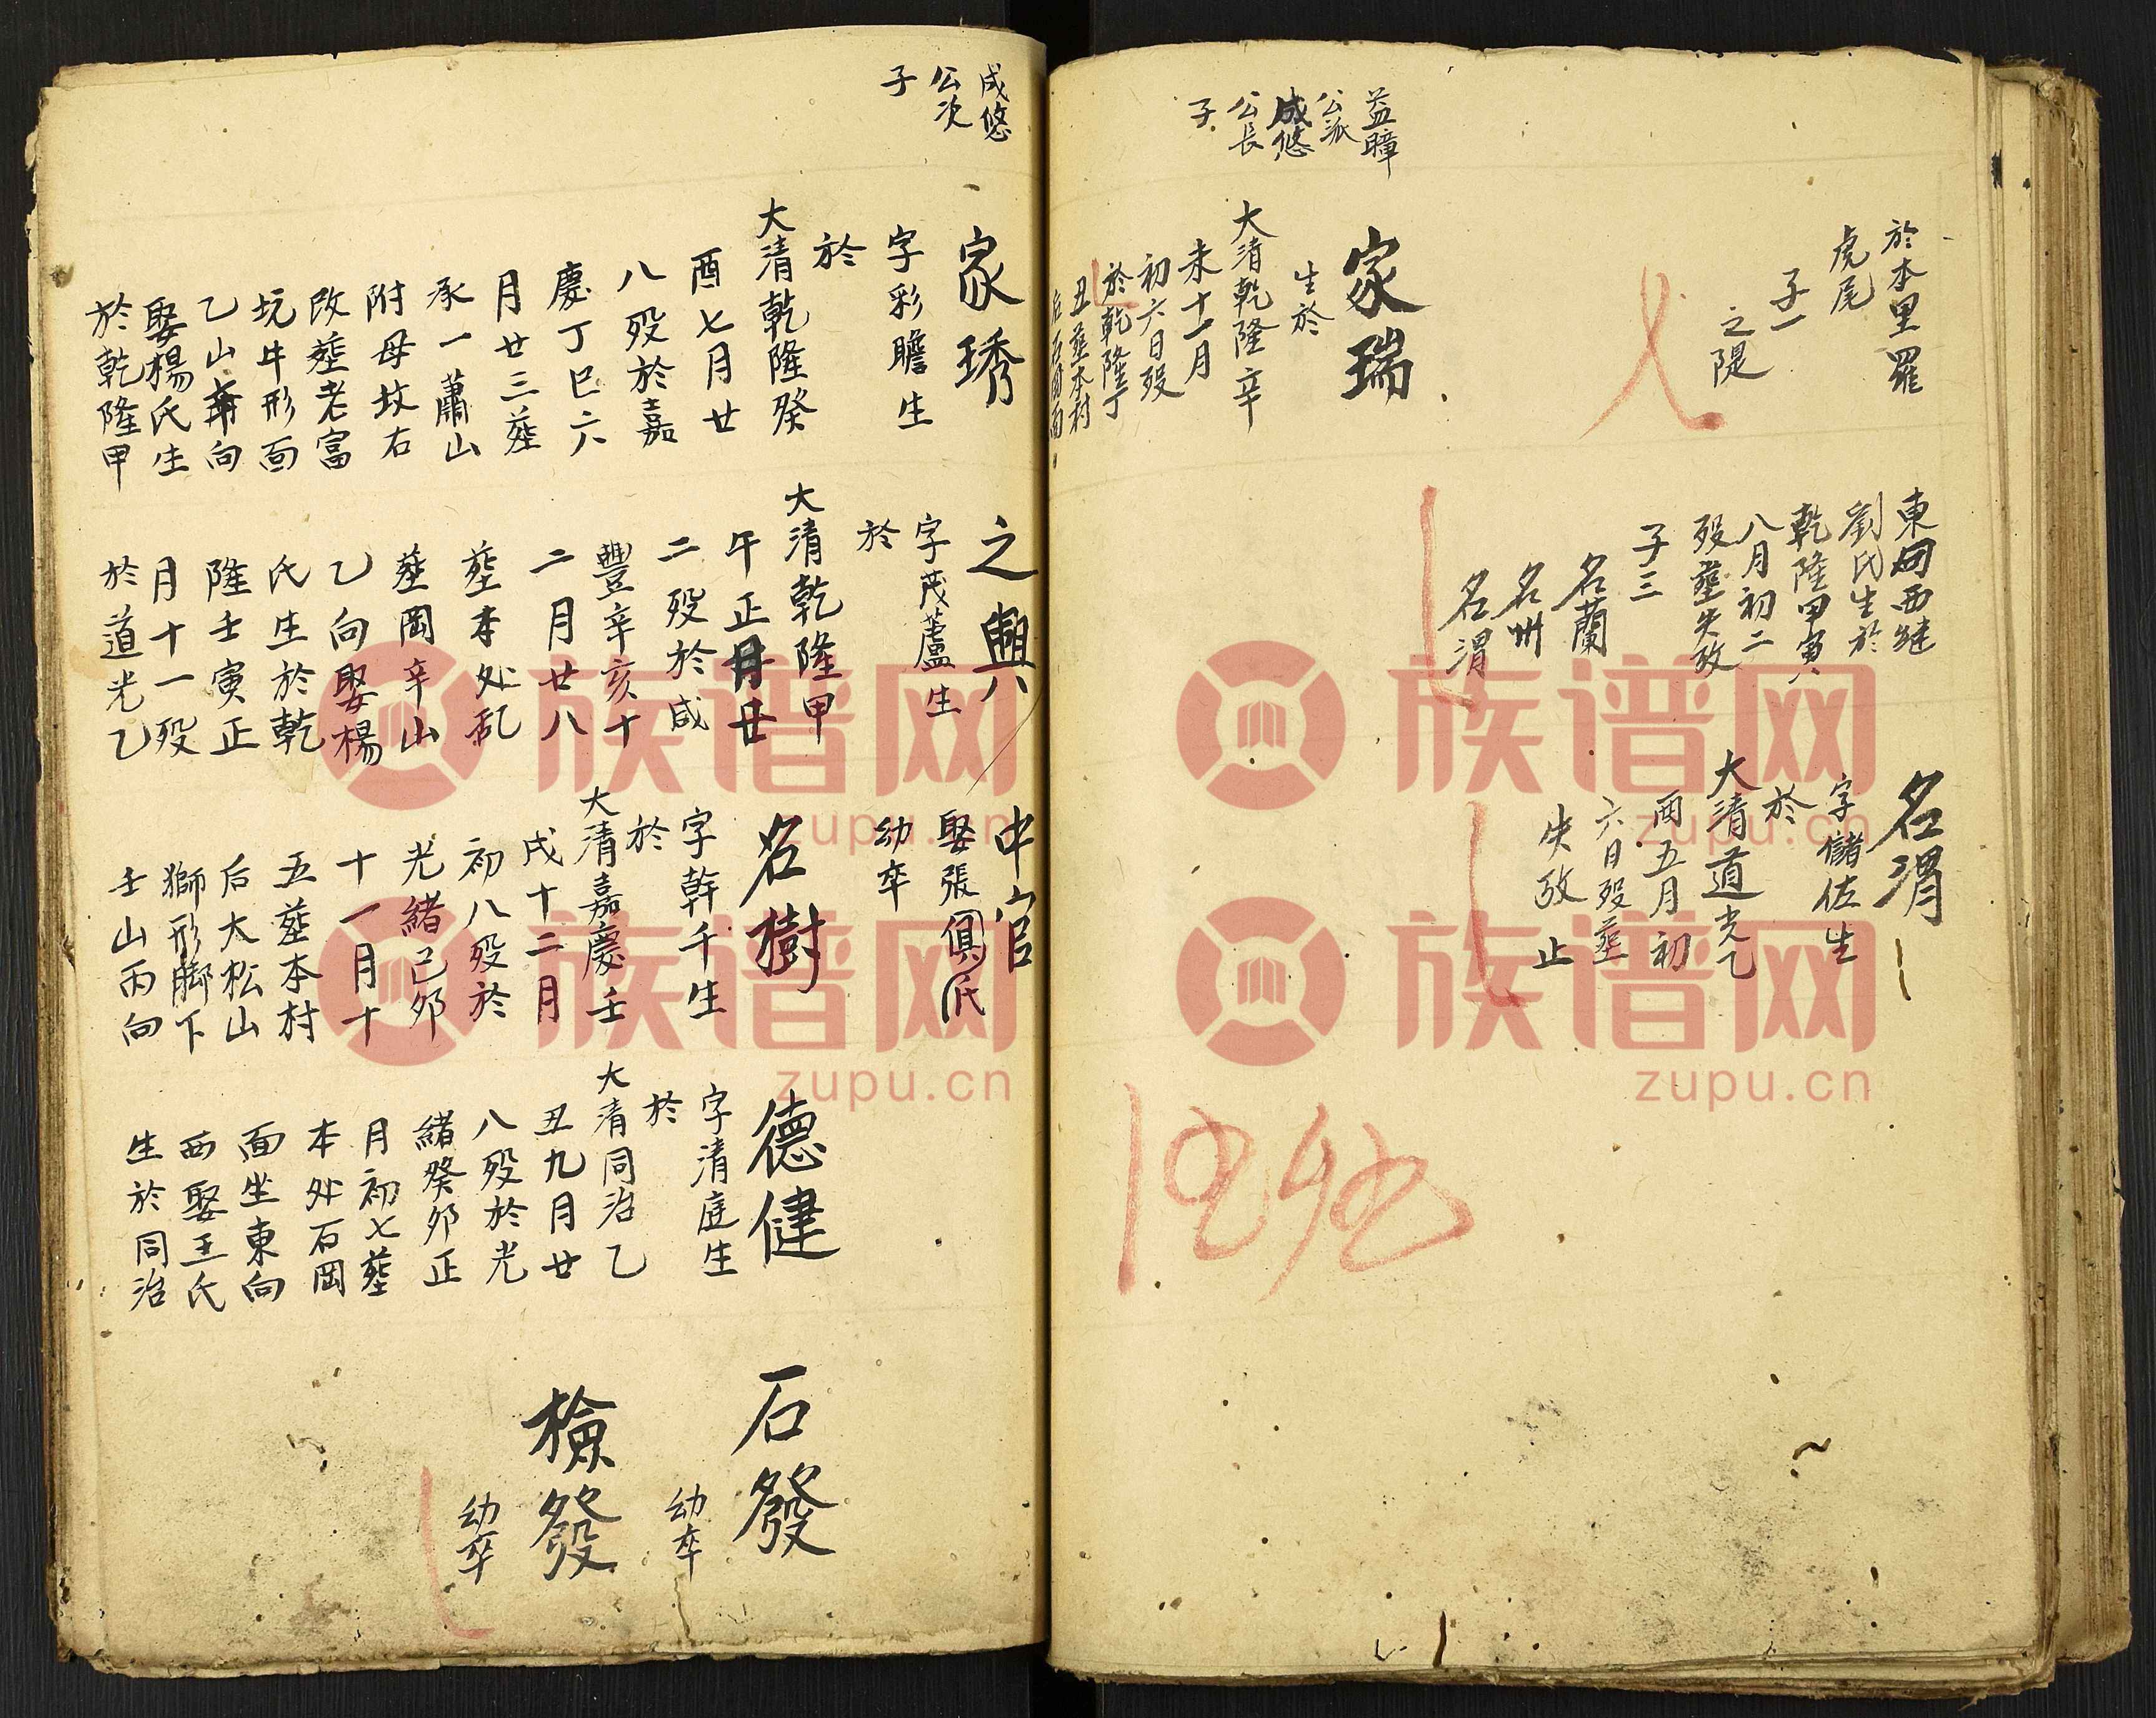 於本里羅
虎尾
子一
之隄
益暲
公派
成悠
公長
子
家瑞
生於
大清乾隆辛
未十一月
初六日殁
於乾隆丁
丑塟本村
后石岡面
東向西継
劉氏生於
乾隆甲寅
八月初二
殁塟失攷
子三
名蘭
名州
名渭
名渭
字儲佐生
於
大清道光乙
酉五月初
六日殁塟
失攷止
1292
成悠
公次
子
家琇
字彩瞻生
於
大清乾隆癸
酉七月廿
八殁於嘉
慶丁巳六
月廿三塟
承一蕭山
附母坟右
改塟老富
坑牛形面
乙山向
娶楊氏生
於乾隆甲
之興
字茂蘆生
於
大清乾隆甲
午正月廿
二殁於咸
豐辛亥十
二月廿八
塟本处瓦
塟岡辛山
乙向娶楊
氏生於乾
隆壬寅正
月十一殁
於道光乙
中官
娶張氏
幼卒
名樹
字幹千生
於
大清嘉慶壬
戌十二月
初八殁於
光緒己卯
十一月十
五塟本村
后大松山
獅形脚下
壬山丙向
德健
字清庭生
於
大清同治乙
丑九月廿
八殁於光
緒癸卯正
月初七塟
本处石岡
面坐東向
西娶王氏
生於同治
石發
幼卒
檢發
幼卒
族谱网
zupu.cn
族谱网
zupu.cn
族谱网
zupu.cn
族谱网
zupu.cn